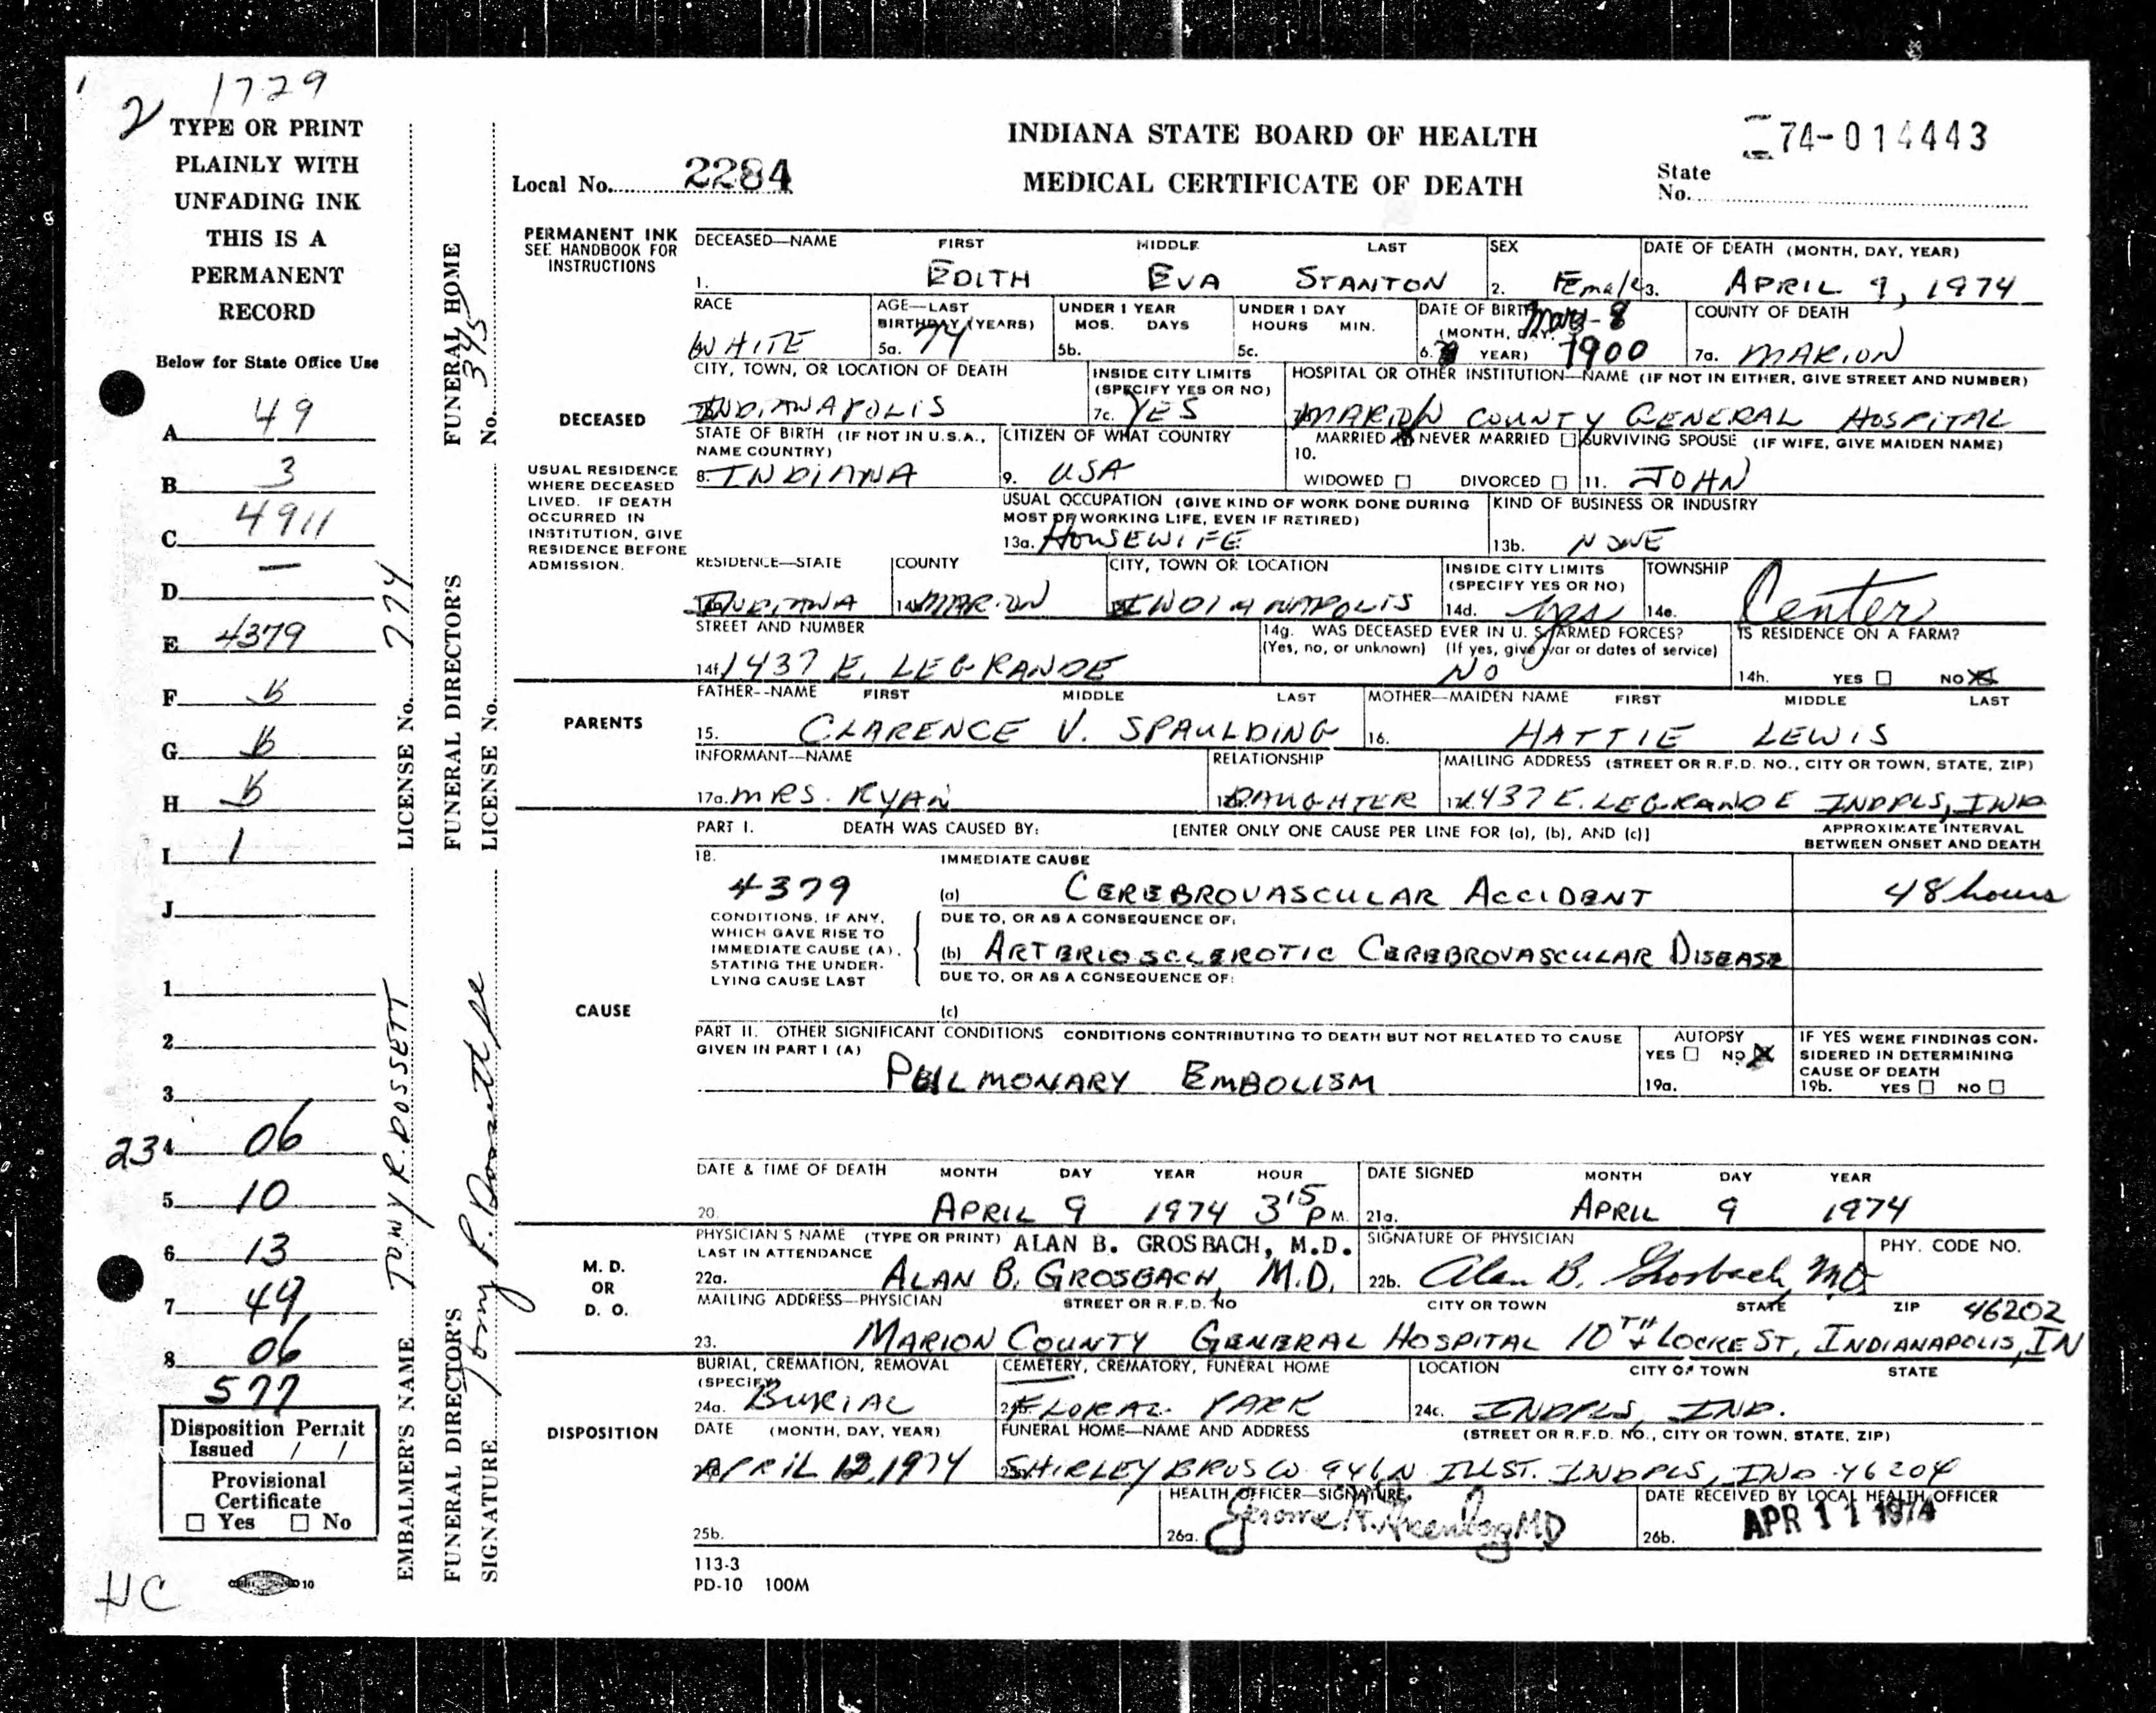 1729
2
TYPE OR PRINT
PLAINLY WITH
UNFADING INK
THIS IS A
PERMANENT
RECORD
Below for State Office Use
A 49
B 3
C 4911
D —
E 4379
F
G
H
I 1
J
1
2
3
234 06
5 10
6 13
7 49
8 06
577
Disposition Permit
Issued / /
Provisional
Certificate
☐ Yes ☐ No
HC
10
EMBALMER'S NAME TONY R. DOSSETT LICENSE No. 774
FUNERAL DIRECTOR'S
SIGNATURE
FUNERAL DIRECTOR'S
LICENSE No.
FUNERAL HOME
No. 345
INDIANA STATE BOARD OF HEALTH
MEDICAL CERTIFICATE OF DEATH
Local No. 2284
74-014443
State
No.
PERMANENT INK
SEE HANDBOOK FOR
INSTRUCTIONS
DECEASED
USUAL RESIDENCE
WHERE DECEASED
LIVED. IF DEATH
OCCURRED IN
INSTITUTION, GIVE
RESIDENCE BEFORE
ADMISSION.
DECEASED—NAME FIRST MIDDLE LAST SEX DATE OF DEATH (MONTH, DAY, YEAR)
1. EDITH EVA STANTON 2. Female 3. APRIL 9, 1974
RACE AGE—LAST BIRTHDAY (YEARS) UNDER 1 YEAR MOS. DAYS UNDER 1 DAY HOURS MIN. DATE OF BIRTH (MONTH, DAY, YEAR) COUNTY OF DEATH
WHITE 5a. 74 5b. 5c. 6. 8 1900 7a. MARION
CITY, TOWN, OR LOCATION OF DEATH INSIDE CITY LIMITS (SPECIFY YES OR NO) HOSPITAL OR OTHER INSTITUTION—NAME (IF NOT IN EITHER, GIVE STREET AND NUMBER)
INDIANAPOLIS 7c. YES MARION COUNTY GENERAL HOSPITAL
STATE OF BIRTH (IF NOT IN U.S.A., NAME COUNTRY) CITIZEN OF WHAT COUNTRY 10. MARRIED ☒ NEVER MARRIED ☐ WIDOWED ☐ DIVORCED ☐ SURVIVING SPOUSE (IF WIFE, GIVE MAIDEN NAME)
8. INDIANA 9. USA 11. JOHN
USUAL OCCUPATION (GIVE KIND OF WORK DONE DURING MOST OF WORKING LIFE, EVEN IF RETIRED) KIND OF BUSINESS OR INDUSTRY
13a. HOUSEWIFE 13b. NONE
RESIDENCE—STATE COUNTY CITY, TOWN OR LOCATION INSIDE CITY LIMITS (SPECIFY YES OR NO) TOWNSHIP
INDIANA MARION INDIANAPOLIS 14d. yes 14e. Center
STREET AND NUMBER 14g. WAS DECEASED EVER IN U. S. ARMED FORCES? (Yes, no, or unknown) (If yes, give war or dates of service) IS RESIDENCE ON A FARM?
14f 1437 E. LEGRANDE NO 14h. YES ☐ NO ☒
PARENTS
FATHER--NAME FIRST MIDDLE LAST MOTHER—MAIDEN NAME FIRST MIDDLE LAST
15. CLARENCE V. SPAULDING 16. HATTIE LEWIS
INFORMANT—NAME RELATIONSHIP MAILING ADDRESS (STREET OR R.F.D. NO., CITY OR TOWN, STATE, ZIP)
17a. MRS. RYAN DAUGHTER 1437 E. LEGRANDE INDPLS, IND
PART I. DEATH WAS CAUSED BY: [ENTER ONLY ONE CAUSE PER LINE FOR (a), (b), AND (c)] APPROXIMATE INTERVAL BETWEEN ONSET AND DEATH
18. IMMEDIATE CAUSE
4379 (a) CEREBROVASCULAR ACCIDENT 48 hours
CONDITIONS, IF ANY,
WHICH GAVE RISE TO
IMMEDIATE CAUSE (A),
STATING THE UNDER-
LYING CAUSE LAST
DUE TO, OR AS A CONSEQUENCE OF:
(b) ARTERIOSCLEROTIC CEREBROVASCULAR DISEASE
DUE TO, OR AS A CONSEQUENCE OF:
(c)
CAUSE
PART II. OTHER SIGNIFICANT CONDITIONS CONDITIONS CONTRIBUTING TO DEATH BUT NOT RELATED TO CAUSE
GIVEN IN PART I (A)
PULMONARY EMBOLISM
AUTOPSY
YES ☐ NO ☒
19a.
IF YES WERE FINDINGS CON-
SIDERED IN DETERMINING
CAUSE OF DEATH
19b. YES ☐ NO ☐
DATE & TIME OF DEATH MONTH DAY YEAR HOUR DATE SIGNED MONTH DAY YEAR
20. APRIL 9 1974 3 15 P M. 21a. APRIL 9 1974
M. D.
OR
D. O.
PHYSICIAN'S NAME (TYPE OR PRINT) ALAN B. GROSBACH, M.D. SIGNATURE OF PHYSICIAN PHY. CODE NO.
LAST IN ATTENDANCE
22a. ALAN B. GROSBACH, M.D. 22b. Alan B. Grosbach, MD
MAILING ADDRESS—PHYSICIAN STREET OR R.F.D. NO CITY OR TOWN STATE ZIP 46202
23. MARION COUNTY GENERAL HOSPITAL 10TH + LOCKE ST, INDIANAPOLIS, IN
DISPOSITION
BURIAL, CREMATION, REMOVAL (SPECIFY) CEMETERY, CREMATORY, FUNERAL HOME LOCATION CITY OR TOWN STATE
24a. BURIAL FLORAL PARK 24c. INDPLS, IND.
DATE (MONTH, DAY, YEAR) FUNERAL HOME—NAME AND ADDRESS (STREET OR R.F.D. NO., CITY OR TOWN, STATE, ZIP)
APRIL 12, 1974 SHIRLEY BROS CO. 946 N ILL ST. INDPLS, IND 46204
HEALTH OFFICER—SIGNATURE DATE RECEIVED BY LOCAL HEALTH OFFICER
25b. 26a. MD 26b. APR 11 1974
113-3
PD-10 100M